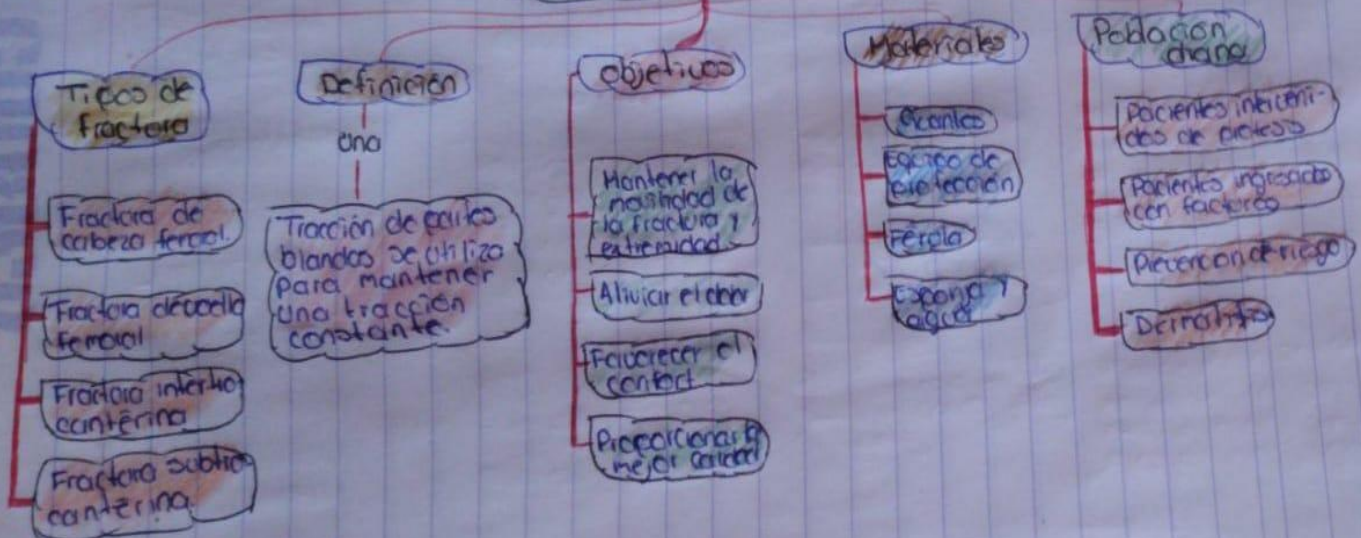 Tipos de
fractura
Fractura de
cabeza femoral.
Fractura de cuello
femoral
Fractura intertro
cantérina
Fractura subtro
cantérina.
Definición
Una
Tracción de partes
blandas se utiliza
para mantener
una tracción
constante.
Objetivos
Mantener la
de
la fractura y
extremidad.
Aliviar el dolor
Favorecer el
confort
Proporcionar la
mejor calidad
Materiales
Guantes
Equipo de
protección
Férola
Esponja y
agua
Población
diana
Pacientes interveni-
dos de
Pacientes ingresados
con
de riesgo